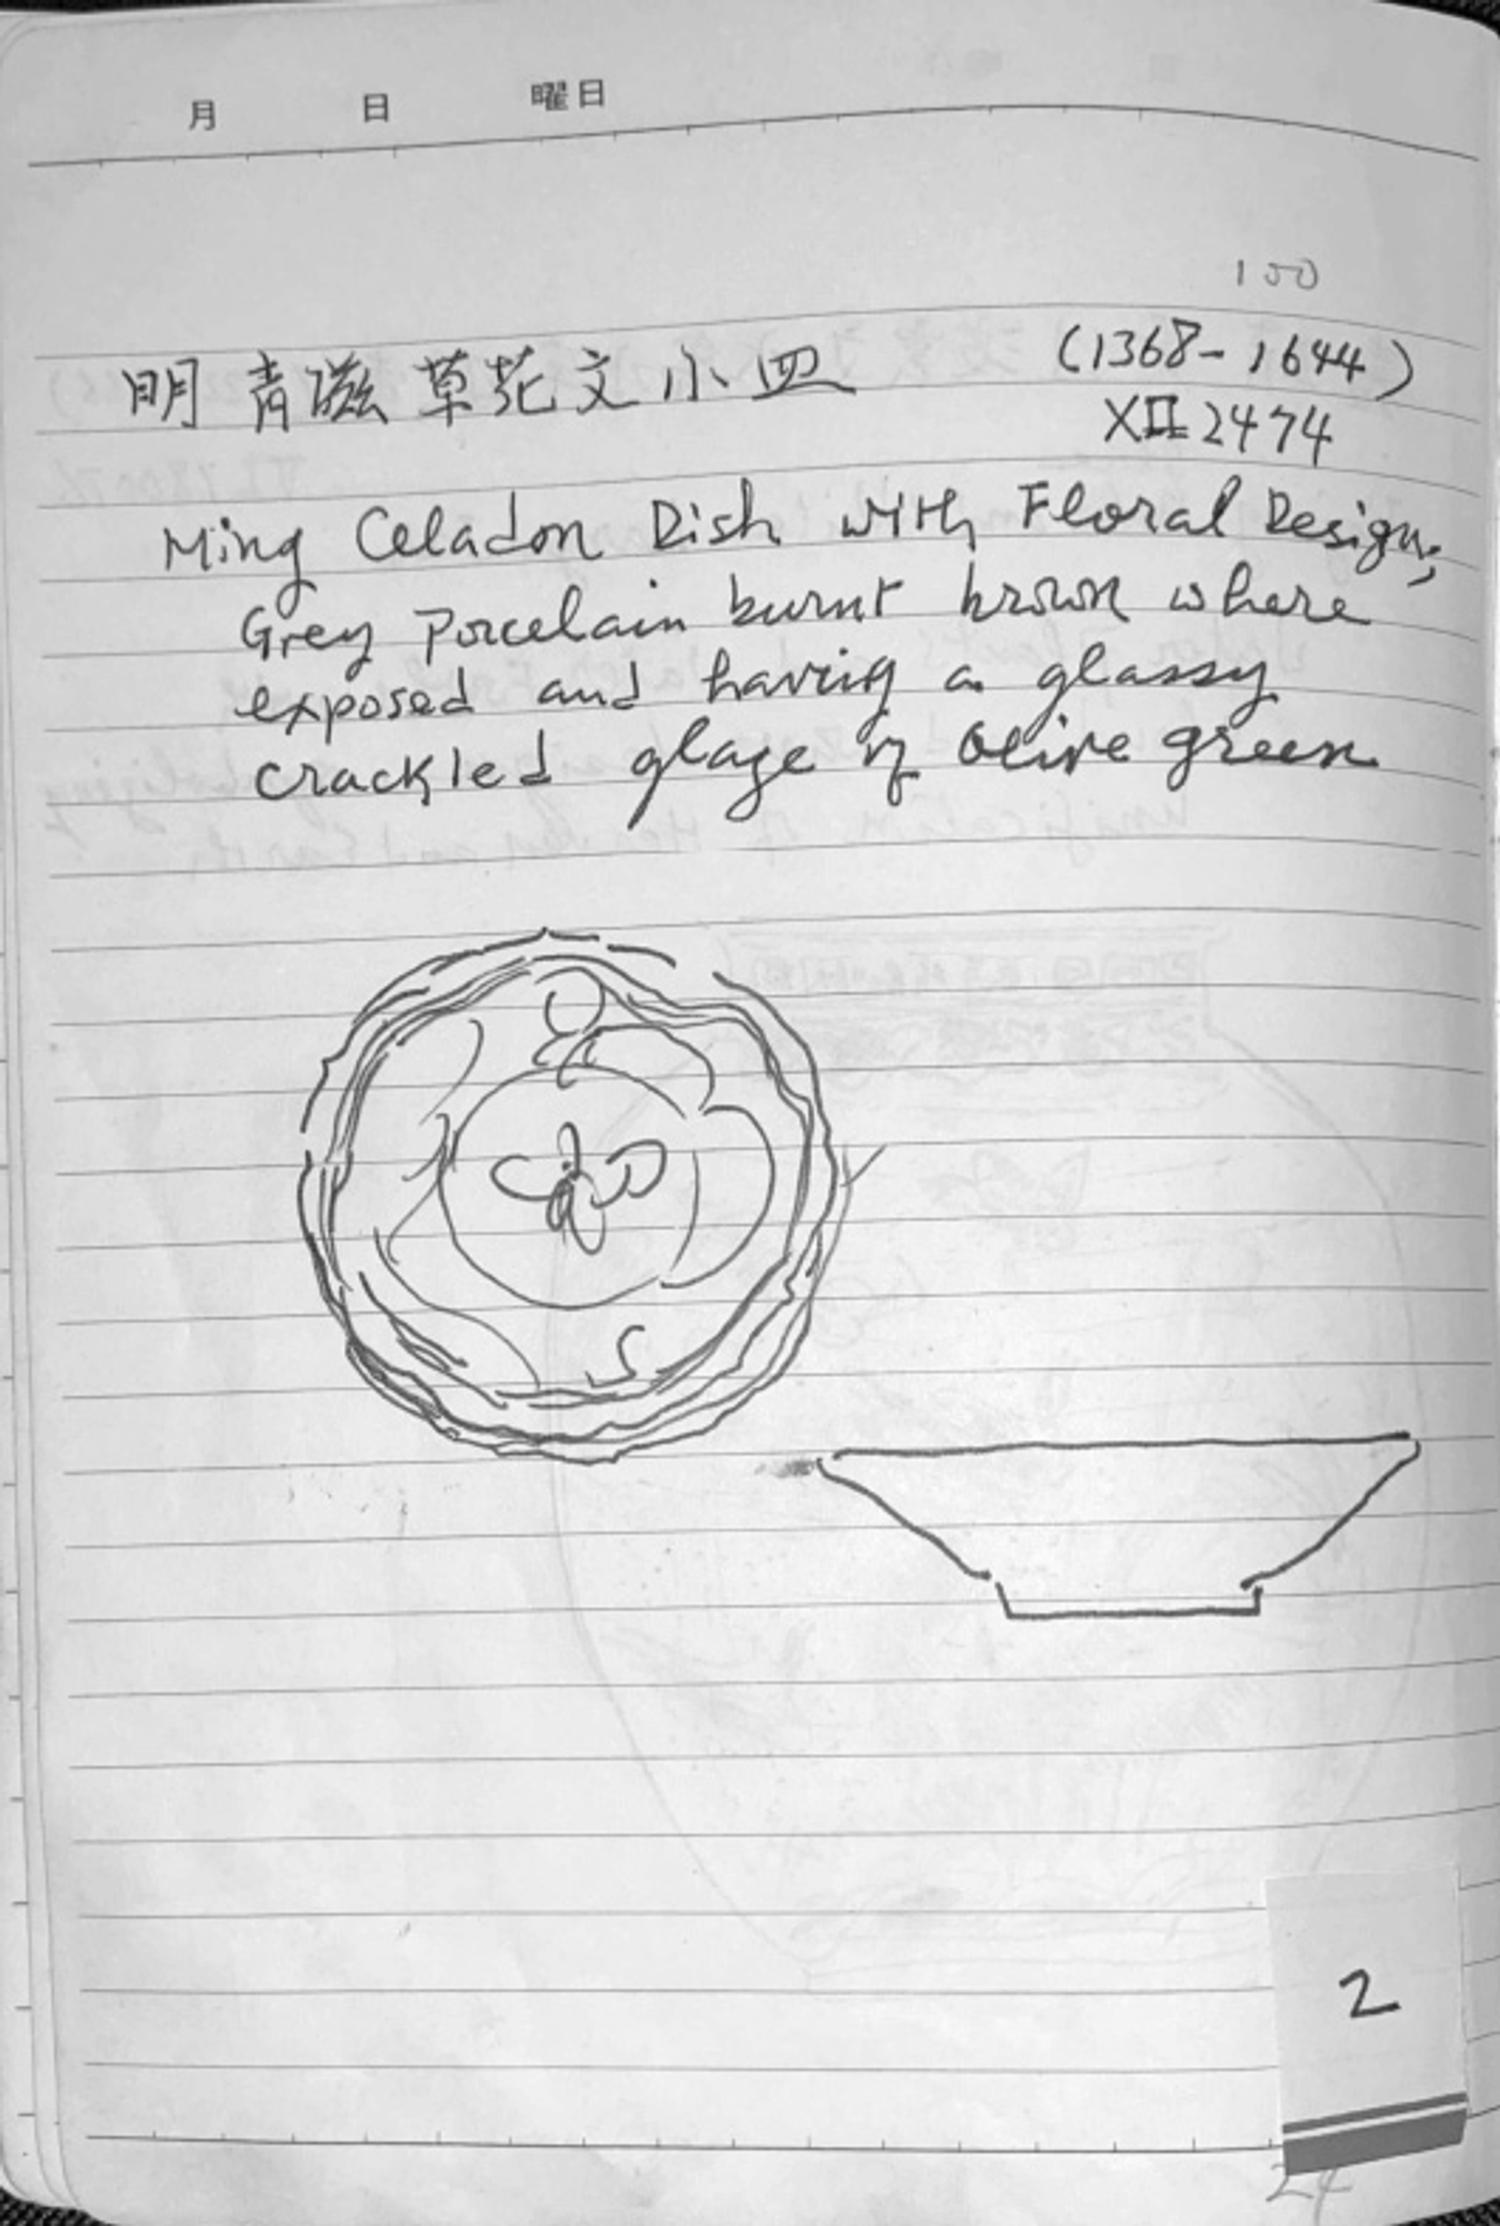 月 日 曜日
100
明 青磁草花文小皿 (1368-1644)
XII 2474
Ming Celadon Dish with Floral Design,
Grey Porcelain burnt brown where
exposed and having a glassy
crackled glaze of Olive green
2
24